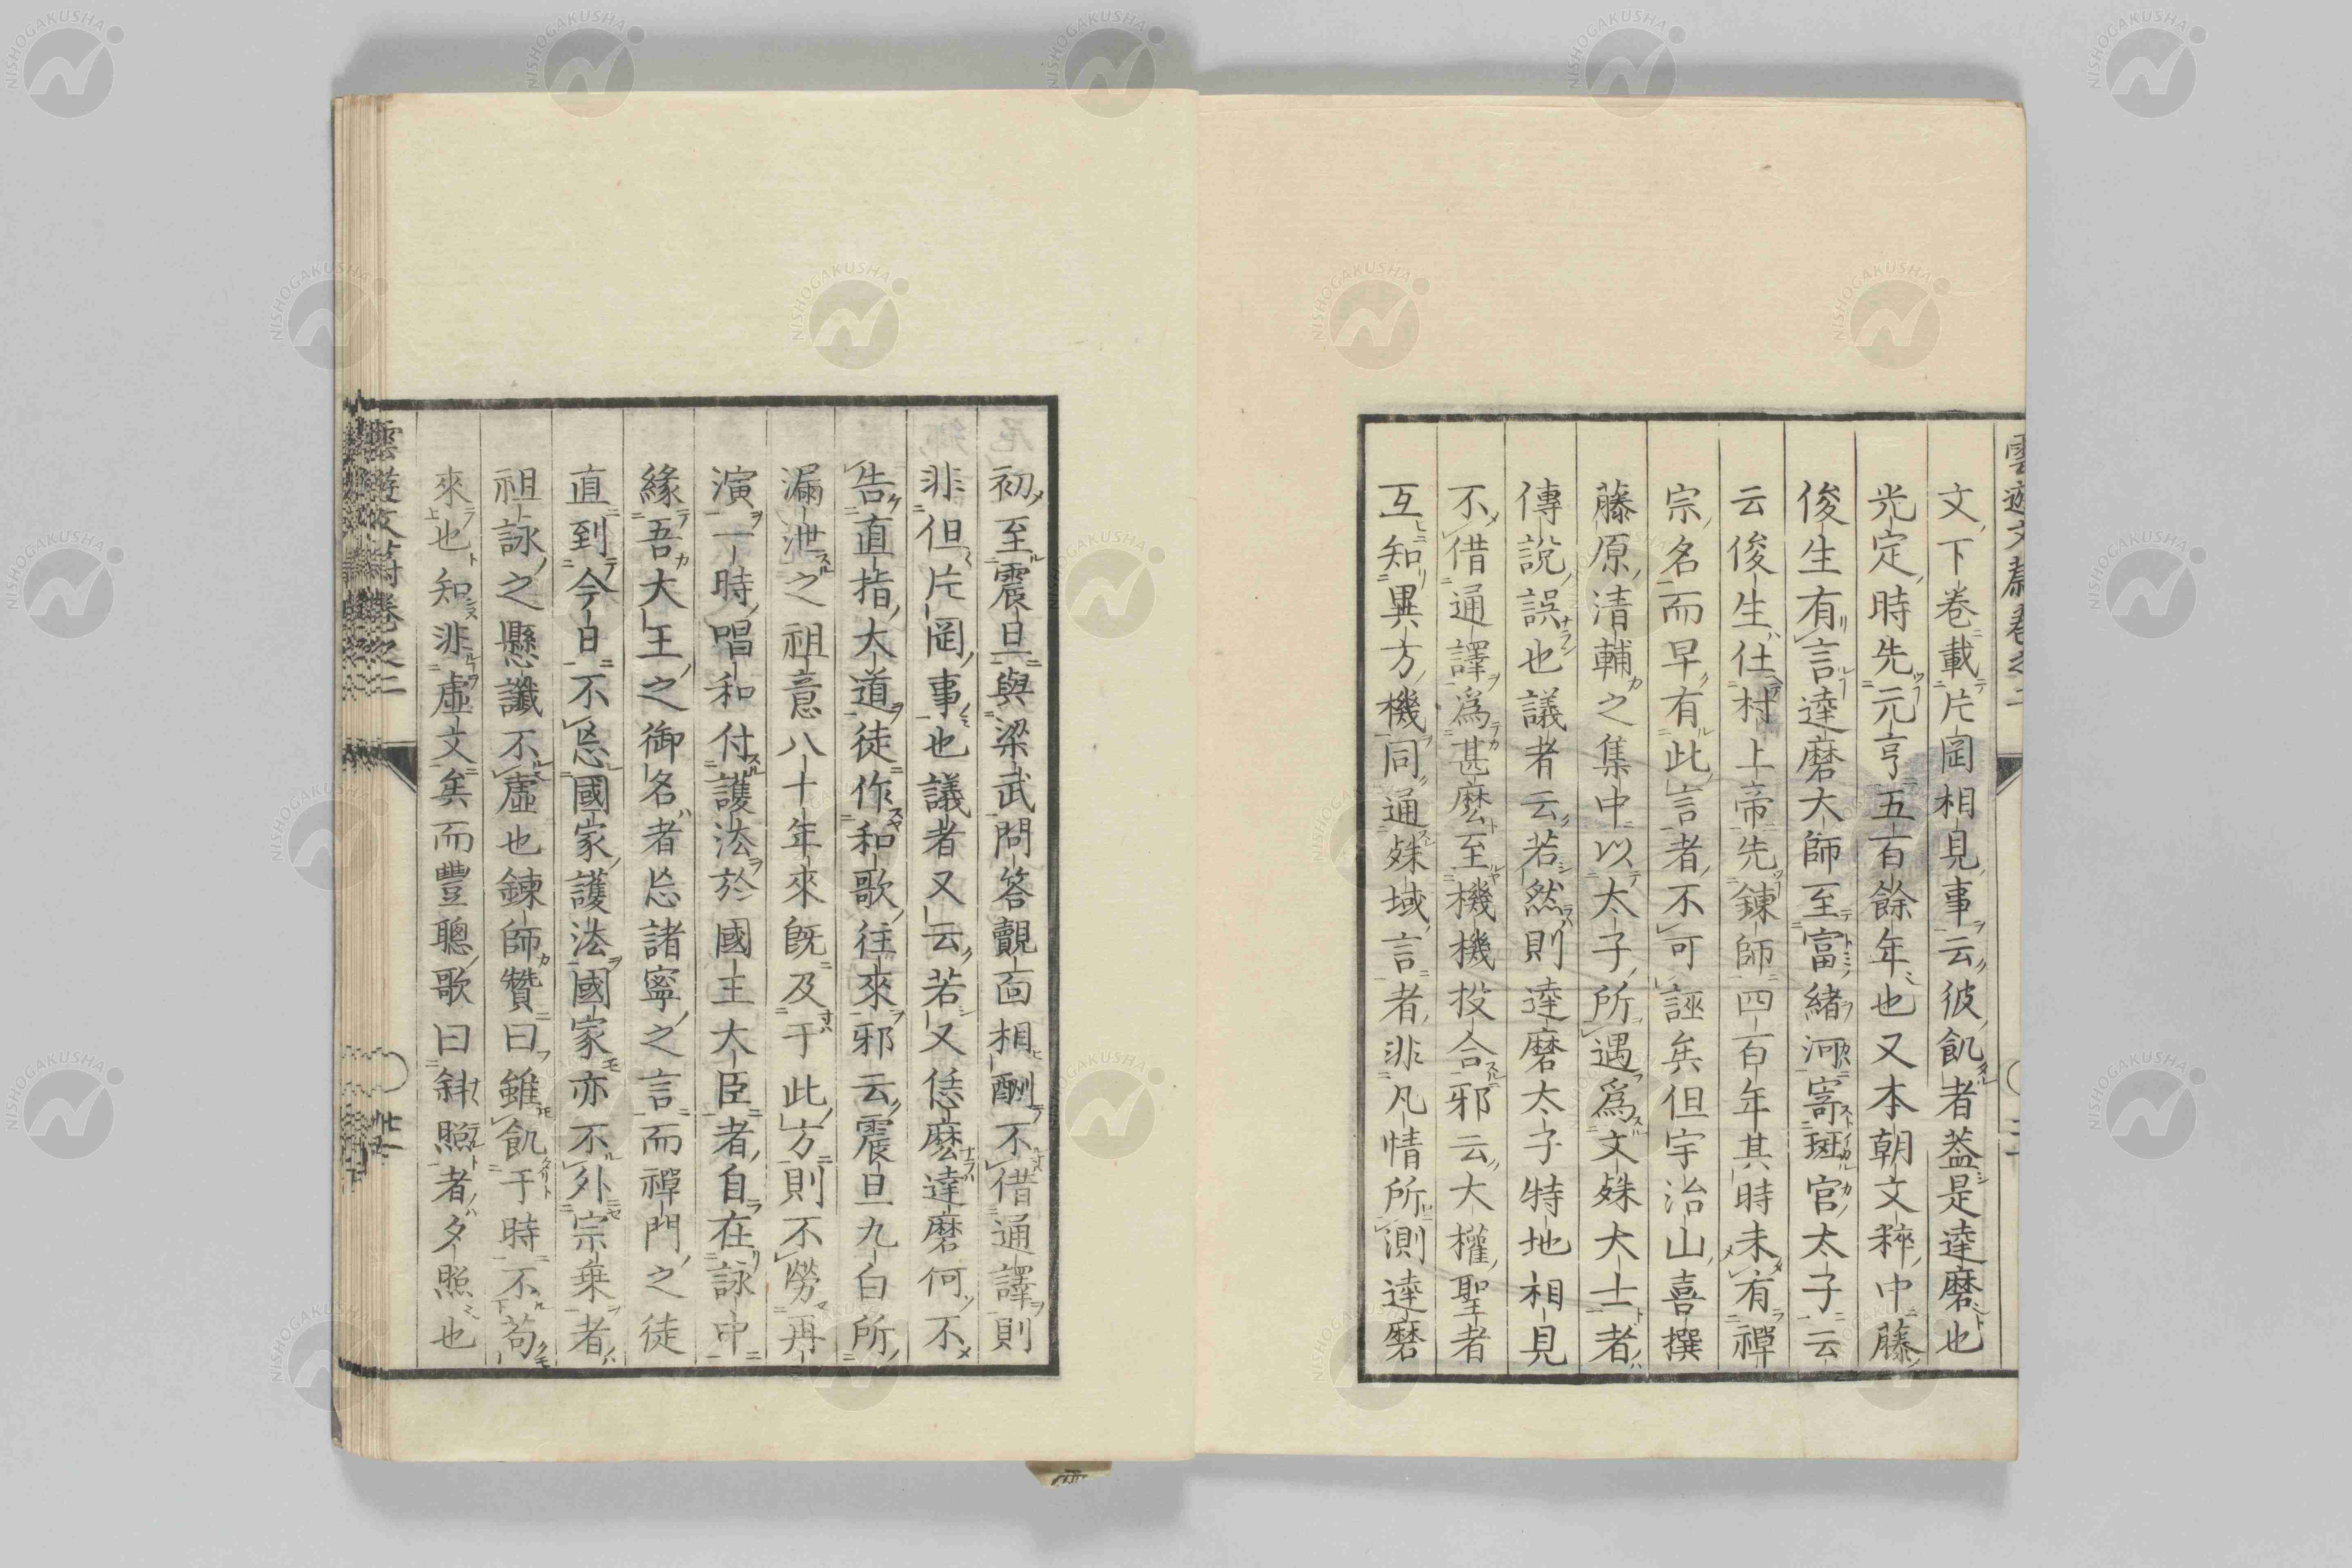 文下卷載片罡相見事云彼飢者盖是達磨也
光定時先元亨五百餘年也又本朝文粹中藤
俊生有言達磨大師至富緒河寄斑宮太子云
云俊生仕村上帝先鍊師四百年其時未有禪
宗名而早有此言者不可誣矣但宇治山喜撰
藤原清輔之集中以太子所遇爲文殊大士者
傳說誤也議者云若然則達磨太子特地相見
不借通譯爲甚麽至機機投合邪云大權聖者
互知異方機同通殊域言者非凡情所測達磨
初至震旦與梁武問答覿面相酬不借通譯則
非但片罡事也議者又云若又恁麽達磨何不
告直指大道徒作和歌往來邪云震旦九白所
漏泄之祖意八十年來既及于此方則不勞再
演一時唱和付護法於國主大臣者自在詠中
緣吾大王之御名者忘諸寧之言而禪門之徒
直到今日不忘國家護法國家亦不外宗乗者
祖詠之懸讖不虛也鍊師贊曰雖飢于時不苟
來也知非虛文矣而豐聰歌曰斜照者夕照也
雲遊文蔚卷之二
NISHOGAKUSHA